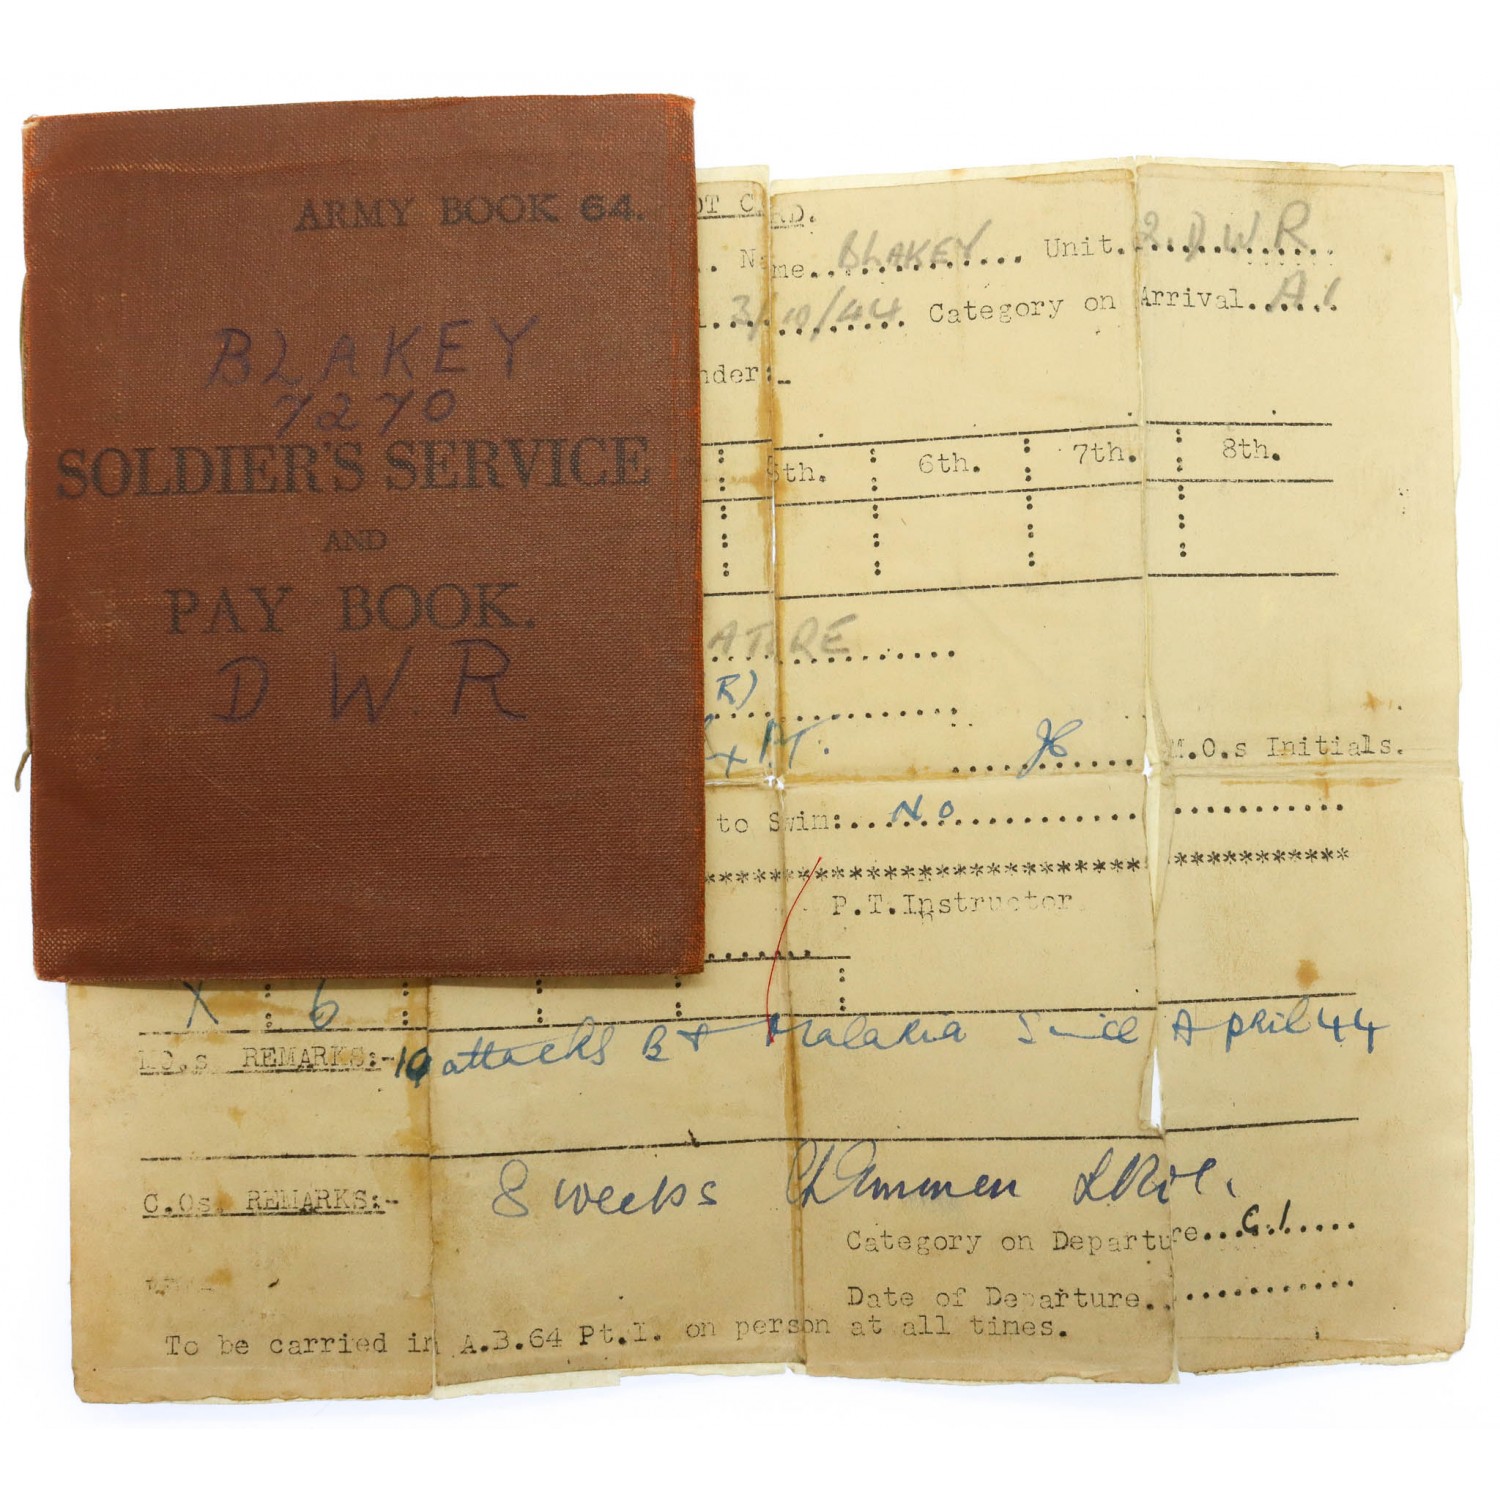 ARMY BOOK 64.
BLAKEY
7270
SOLDIER'S SERVICE
AND
PAY BOOK.
D W R
OT CARD.
Name BLAKEY Unit 2. D W R
3/10/44 Category on Arrival A1
nder:-
5th. 6th. 7th. 8th.
ATURE
R)
M.O.s Initials.
to Swim: NO
***************************************
P.T.Instructor
X 6
REMARKS:- 10 attacks BT Malaria Since April 44
C.Os REMARKS:- 8 weeks
Category on Departure C.1
Date of Departure
To be carried in A.B.64 Pt.I. on person at all times.